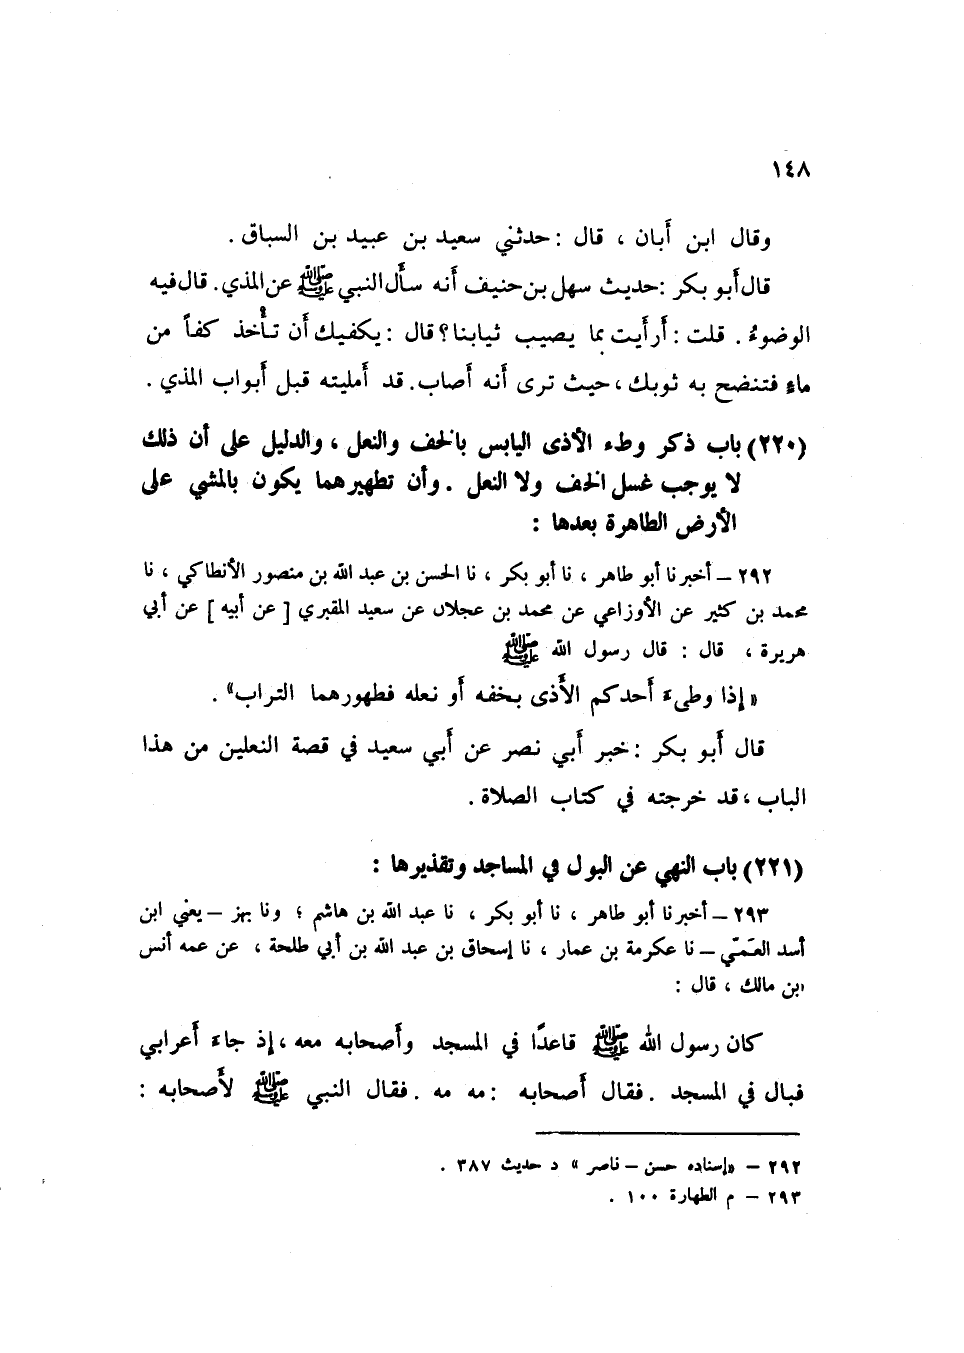 ١٤٨
وقال ابن أبان ، قال : حدثني سعيد بن عبيد بن السباق .
قال أبو بكر : حديث سهل بن حنيف أنه سأل النبي ﷺ عن المذي . قال فيه
الوضوءُ . قلت : أرأيت بما يصيب ثيابنا؟ قال : يكفيك أن تأخذ كفاً من
ماء فتنضح به ثوبك ، حيث ترى أنه أصاب . قد أمليته قبل أبواب المذي .
(٢٢٠) باب ذكر وطء الأذى اليابس بالخف والنعل ، والدليل على أن ذلك
لا يوجب غسل الخف ولا النعل . وأن تطهيرهما يكون بالمشي على
الأرض الطاهرة بعدها :
٢٩٢ – أخبرنا أبو طاهر ، نا أبو بكر ، نا الحسن بن عبد الله بن منصور الأنطاكي ، نا
محمد بن كثير عن الأوزاعي عن محمد بن عجلان عن سعيد المقبري [ عن أبيه ] عن أبي
هريرة ، قال : قال رسول الله ﷺ
« إذا وطىء أحدكم الأذى بخفه أو نعله فطهورهما التراب» .
قال أبو بكر : خبر أبي نصر عن أبي سعيد في قصة النعلين من هذا
الباب ، قد خرجته في كتاب الصلاة .
(٢٢١) باب النهي عن البول في المساجد وتقذيرها :
٢٩٣ – أخبرنا أبو طاهر ، نا أبو بكر ، نا عبد الله بن هاشم ؛ ونا بهز – يعني ابن
أسد العَمّي – نا عكرمة بن عمار ، نا إسحاق بن عبد الله بن أبي طلحة ، عن عمه أنس
ابن مالك ، قال :
كان رسول الله ﷺ قاعدًا في المسجد وأصحابه معه ، إذ جاء أعرابي
فبال في المسجد . فقال أصحابه : مه مه . فقال النبي ﷺ لأصحابه :
٢٩٢ – «إسناده حسن – ناصر » د حديث ٣٨٧ .
٢٩٣ – م الطهارة ١٠٠ .